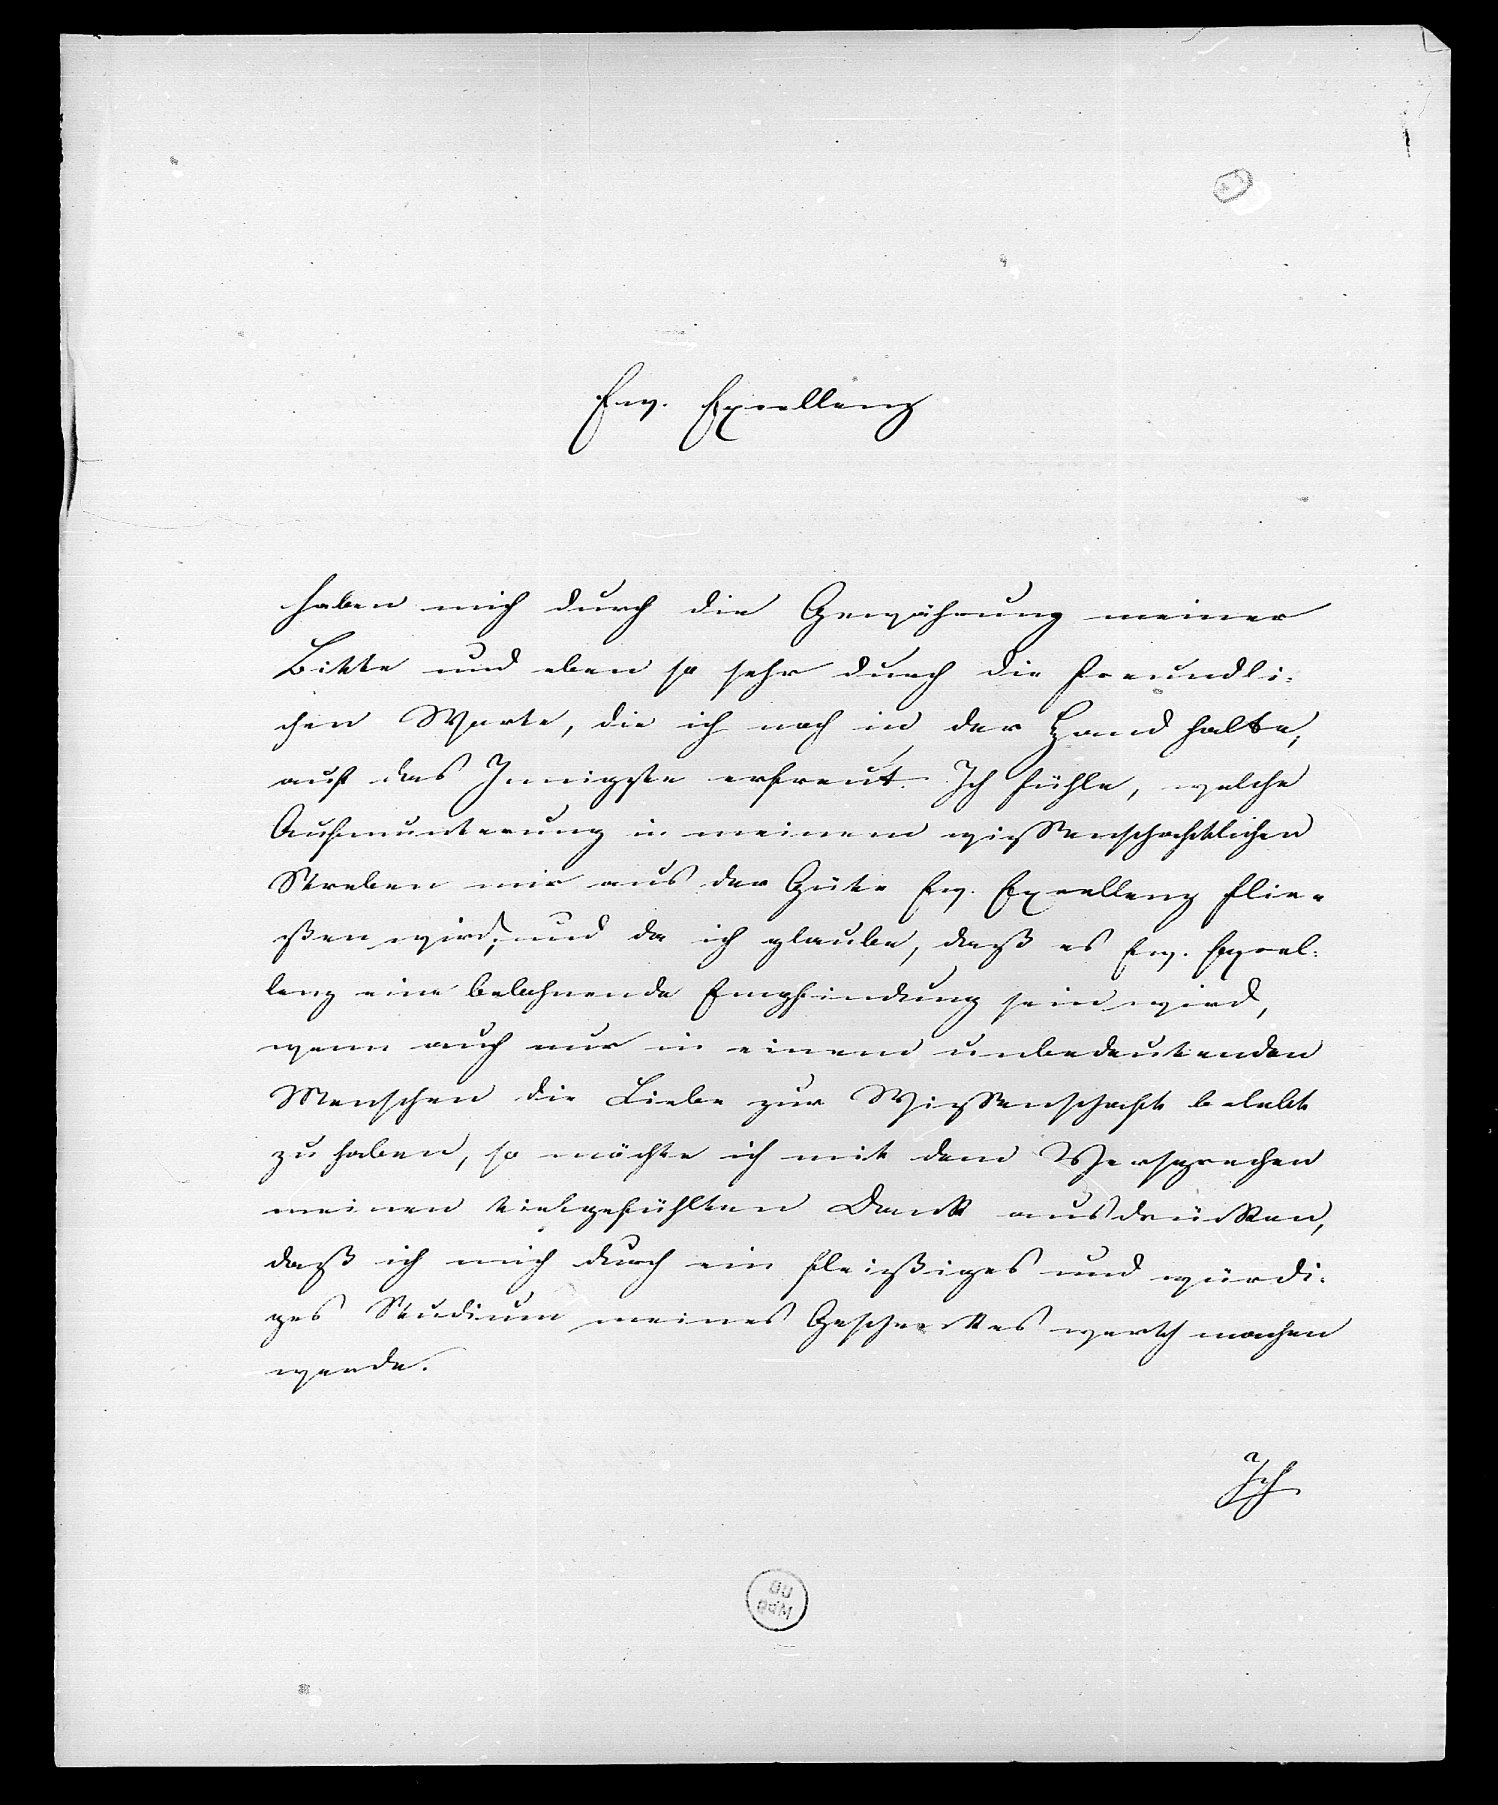 Ew. Excellenz
haben mich durch die Gewährung meiner
Bitte und eben so sehr durch die freundli-
chen Worte, die ich noch in der Hand halte,
auf das Innigste erfreut. Ich fühle, welche
Aufmunterung in meinem wissenschaftlichen
Streben mir aus der Güte Ew. Excellenz flie-
ßen wird; und da ich glaube, daß es Ew. Excel-
lenz eine belohnende Empfindung sein wird,
wenn auch nur in einem unbedeutenden
Menschen die Liebe zur Wissenschaft belebt
zu haben, so möchte ich mit dem Versprechen
meinen tiefgefühlten Dank ausdrücken,
daß ich mich durch ein fleißiges und würdi-
ges Studium meines Geschenkes werth machen
werde.
Ich